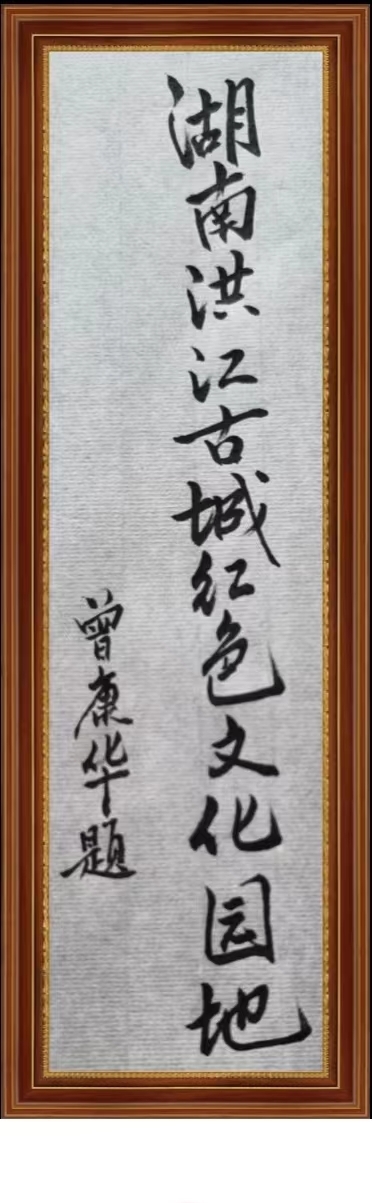 湖南洪江古城红色文化园地
曾康华题